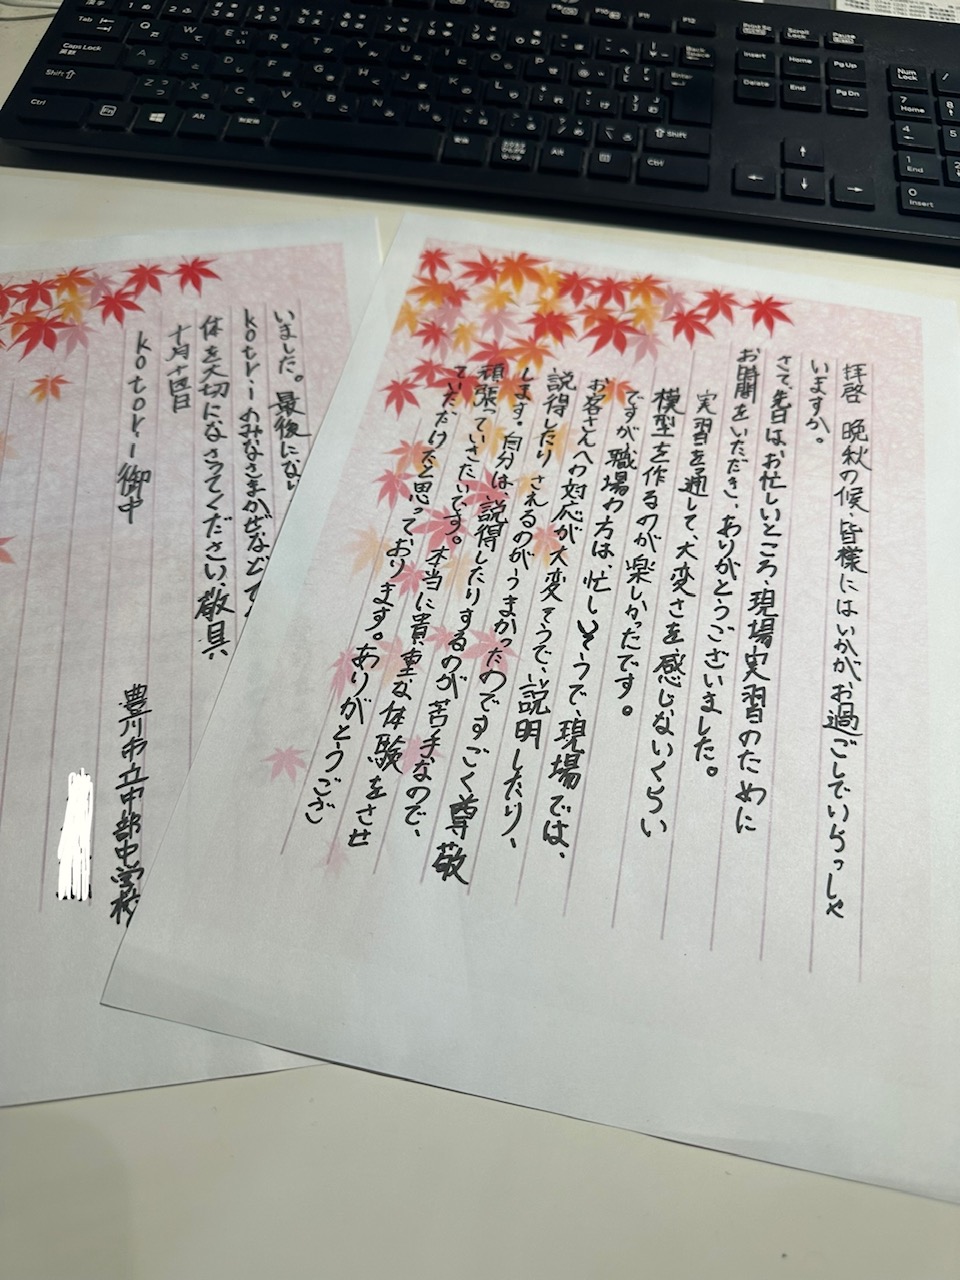 拝啓 晩秋の候、皆様にはいかがお過ごしでいらっしゃ
いますか。
さて、先日は、お忙しいところ、現場実習のために
お時間をいただき、ありがとうございました。
実習を通して、大変さを感じないくらい
模型を作るのが楽しかったです。
ですが、職場の方は、忙しいそうで、現場では、
お客さんへの対応が大変そうで、説明したり、
説得したりされるのがうまかったのですごく尊敬
します。自分は、説得したりするのが苦手なので、
頑張っていきたいです。本当に貴重な体験をさせ
ていただけたと思っております。ありがとうござ
いました。最後にな
kotoriのみなさまかぜなど
体を大切になさってください、敬具
十月十四日
豊川市立中部中学校
kotori御中
Tab
Caps Lock
英数
Shift
Ctrl
Fn
Alt
無変換
変換
Alt
Ctrl
Shift
Enter
Back Space
F10
F11
F12
Insert
Home
Pg Up
Delete
End
Pg Dn
Scroll Lock
Pause
Num Lock
7 Home
8
4
5
1 End
0 Insert